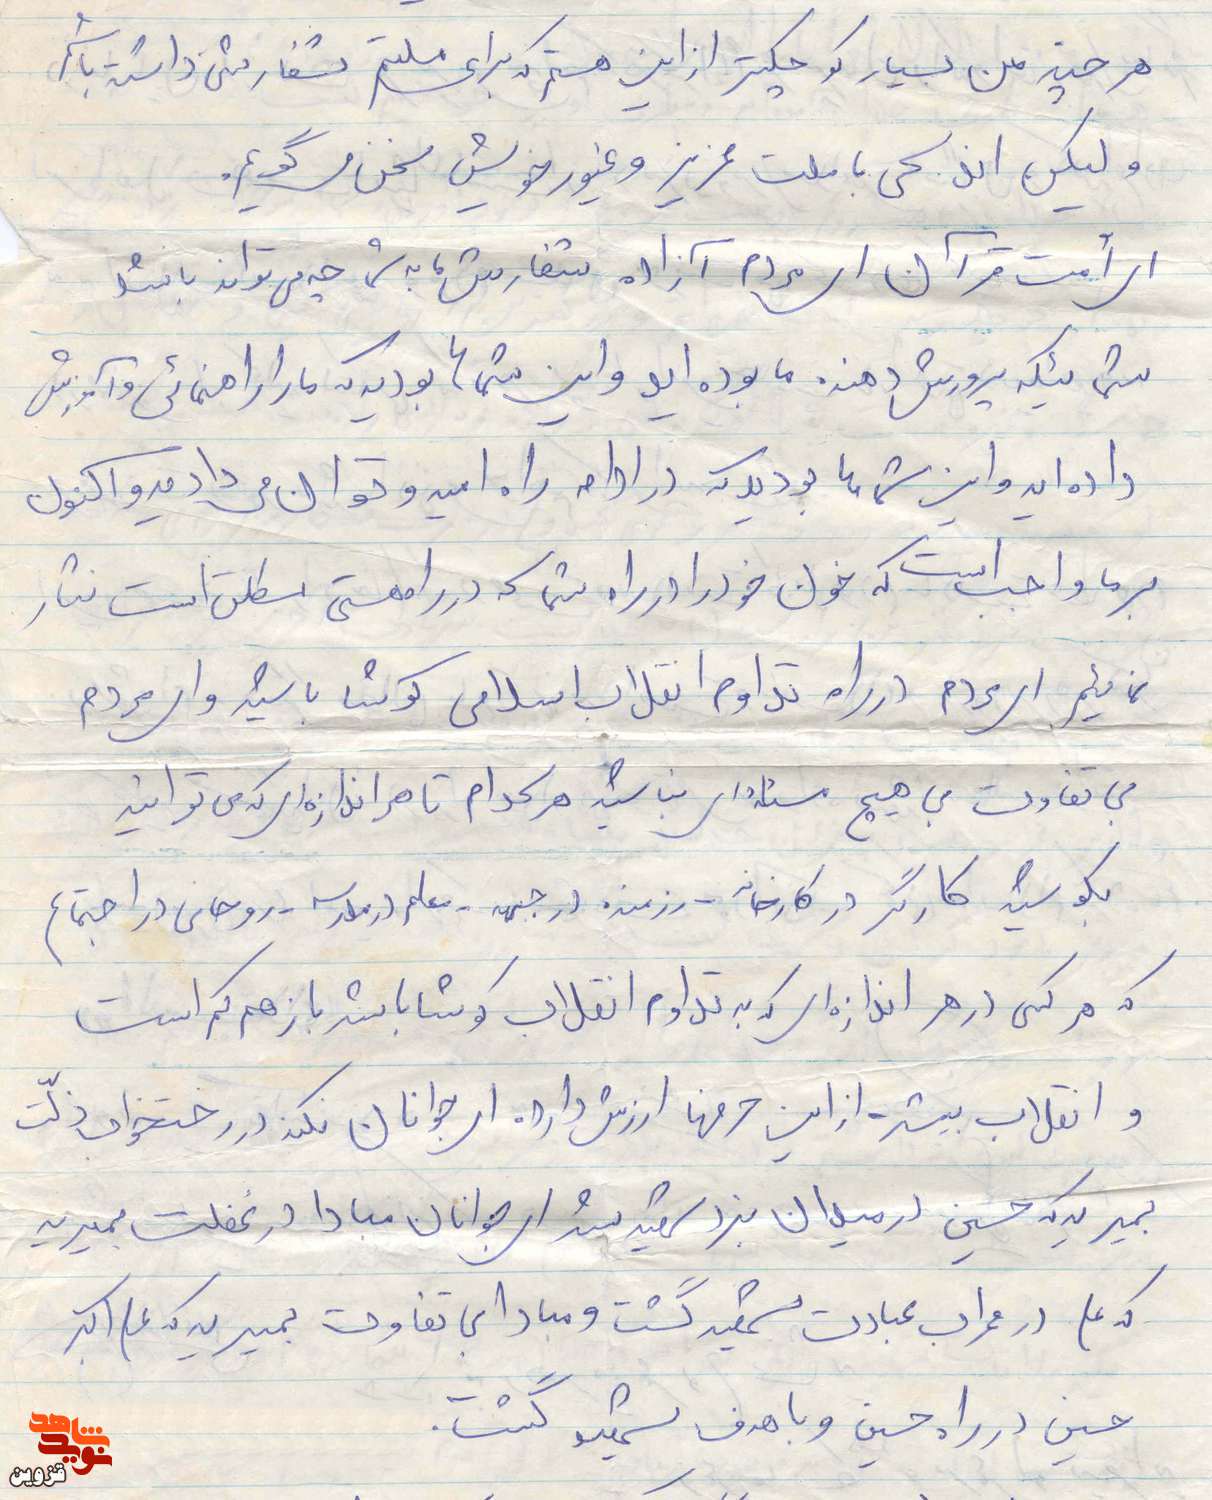 هر چند من بسیار کوچکتر از این هستم که برای ملتم سفارشی داشته باشم
ولیکن اندکی با ملت عزیز و غیور خویش سخن می گویم.
ای امت قرآن ای مردم آزاده سفارش ما به شما چه می تواند باشد
شمائیکه پرورش دهنده ما بوده اید و این شماها بودید که ما را راهنمائی و آموزش
داده اید و این شماها بودید که در ادامه راه امید و توان می دادید و اکنون
بر ما واجب است که خون خود را در راه شما که در راه هستی مطلق است نثار
نمائیم ای مردم در راه تداوم انقلاب اسلامی کوشا باشید و ای مردم
بی تفاوت بی هیچ مسئله ای نباشید هر کدام تا هر اندازه ای که می توانید
بکوشید کارگر در کارخانه - رزمنده در جبهه - معلم در مدرسه - روحانی در اجتماع
که هر کسی در هر اندازه ای که به تداوم انقلاب کوشا باشد باز هم کم است
و انقلاب بیشتر از این حرفها ارزش دارد. ای جوانان نکند در رختخواب ذلّت
بمیرید که حسین در میدان نبرد شهید شد ای جوانان مبادا در غفلت بمیرید
که علی در محراب عبادت شهید گشت و مبادا بی تفاوت بمیرید که علی اکبر
حسین در راه حسین و با هدف شهید گشت.
نوید شاهد
قزوین